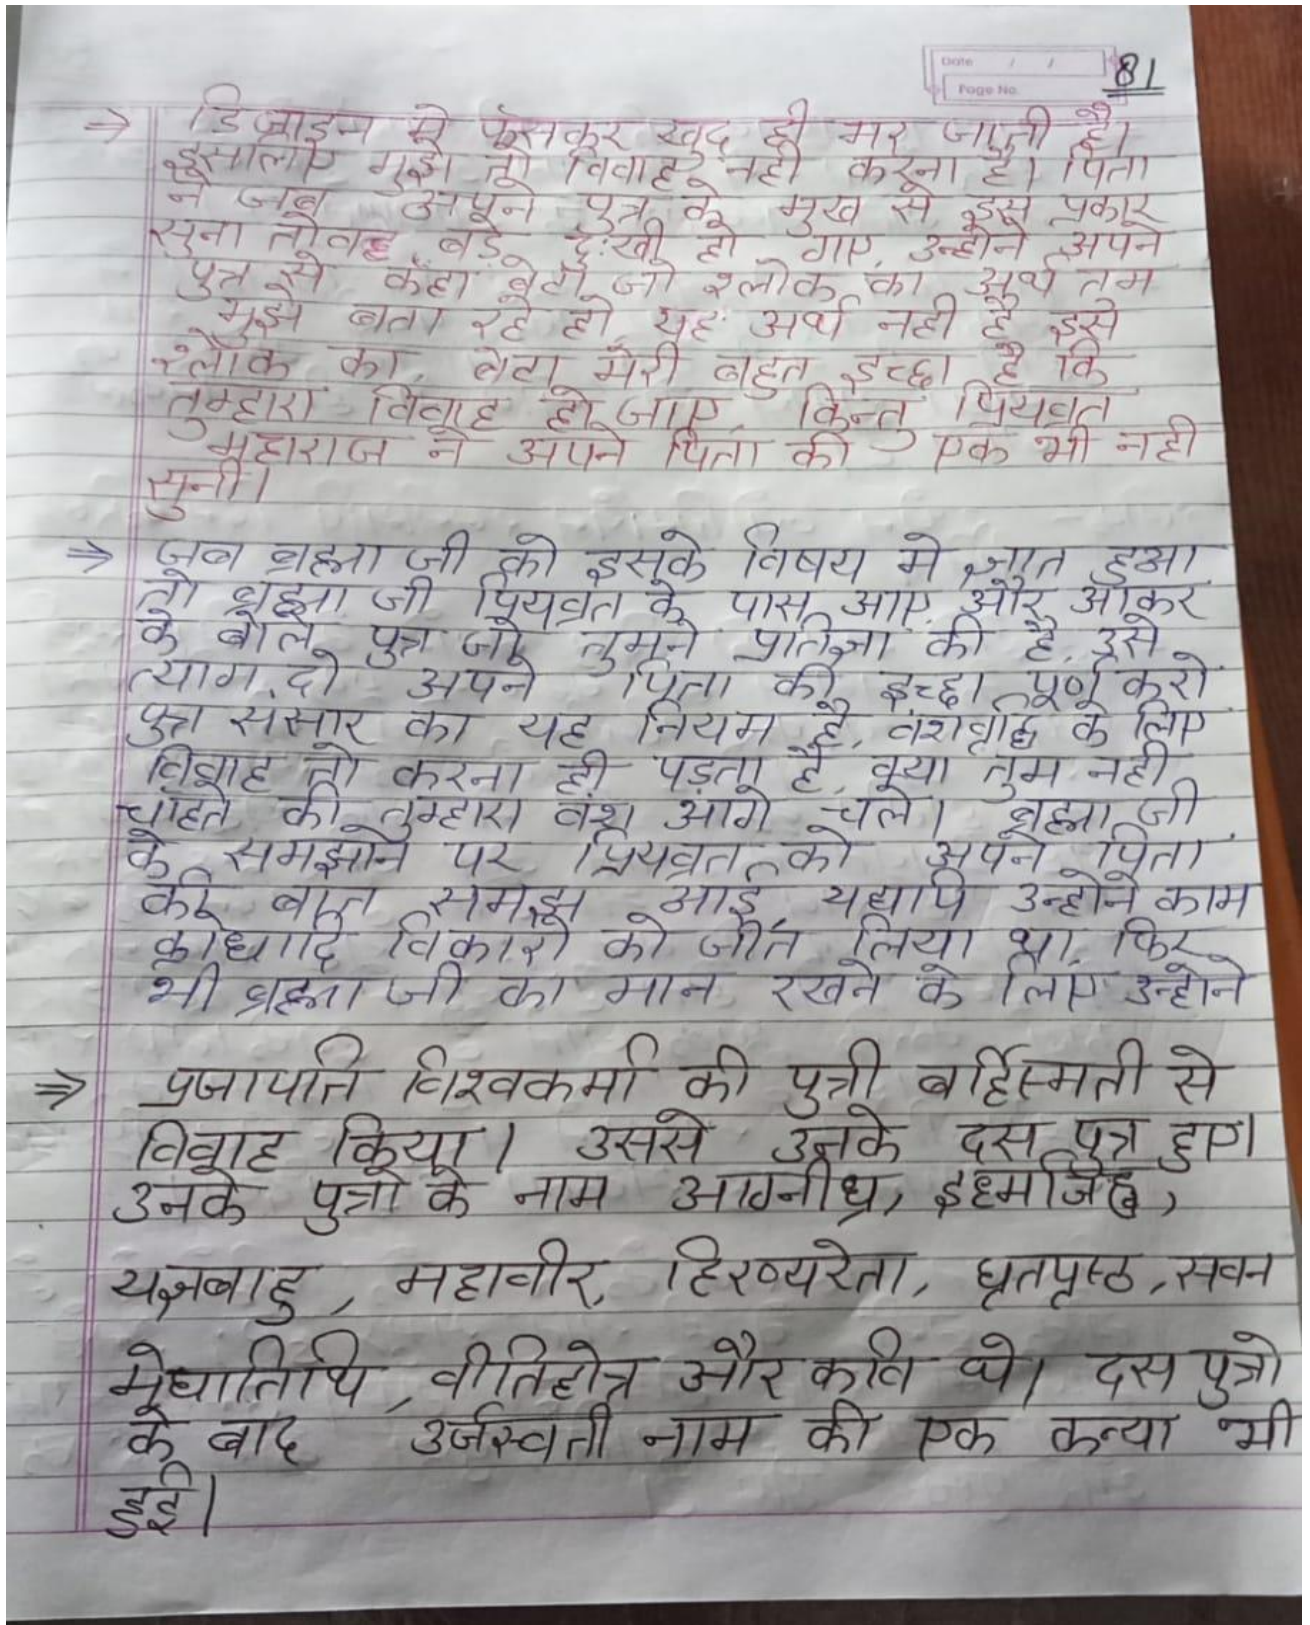 Date / /
Page No.
81
⇒ डिजाइन मे फॅसकर खुद ही मर जाती है।
इसलिए मुझे तो विवाह नही करना है। पिता
ने जब अपने पुत्र के मुख से इस प्रकार
सुना तो वह बडे दुःखी हो गए, उन्होने अपने
पुत्र से कहा बेटा जो श्लोक का अर्थ तुम
मुझे बता रहे हो, यह अर्थ नही है इस
श्लोक का, बेटा मेरी बहुत इच्छा है कि
तुम्हारा विवाह हो जाए, किन्तु प्रियव्रत
महाराज ने अपने पिता की एक भी नही
सुनी।
⇒ जब ब्रह्मा जी को इसके विषय मे ज्ञात हुआ
तो ब्रह्मा जी प्रियव्रत के पास आए, और आकर
के बोले, पुत्र जो तुमने प्रतिज्ञा की है, उसे
त्याग दो अपने पिता की इच्छा पूर्ण करो
पुत्र संसार का यह नियम है, वंशवृद्धि के लिए
विवाह तो करना ही पड़ता है, क्या तुम नही
चाहते की तुम्हारा वंश आगे चले। ब्रह्मा जी
के समझाने पर प्रियव्रत को अपने पिता
की बात समझ आई, यद्यपि उन्होने काम
क्रोधादि विकारो को जीत लिया था, फिर
भी ब्रह्मा जी का मान रखने के लिए उन्होने
⇒ प्रजापति विश्वकर्मा की पुत्री बर्हिस्मती से
विवाह किया। उससे उनके दस पुत्र हुए।
उनके पुत्रो के नाम आग्नीध्र, इध्मजिह्व,
यज्ञबाहु, महावीर, हिरण्यरेता, घृतपृष्ठ, सवन
मेघातिथि, वीतिहोत्र और कवि थे। दस पुत्रो
के बाद उर्जस्वती नाम की एक कन्या भी
हुई।